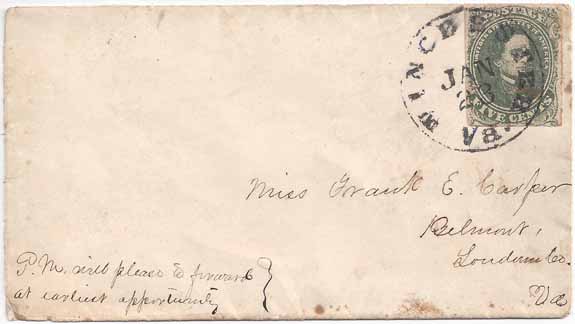 WINCHESTER Va.
JAN
23
FIVE CENTS
Miss Frank E. Carper
Belmont,
Loudoun Co.
Va
P.M. will please to forward
at earliest opportunity